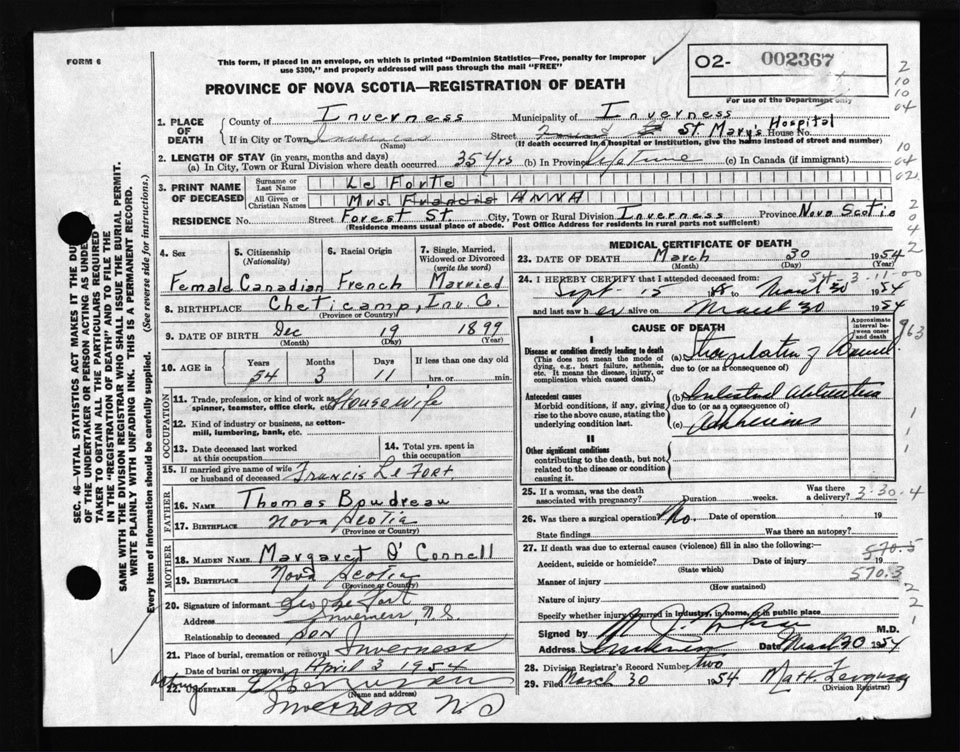 FORM 6
This form, if placed in an envelope, on which is printed "Dominion Statistics—Free, penalty for improper
use $300," and properly addressed will pass through the mail "FREE"
02- 002367
PROVINCE OF NOVA SCOTIA—REGISTRATION OF DEATH
For use of the Department only
1. PLACE OF DEATH County of Inverness Municipality of Inverness
If in City or Town Inverness (Name) Street St. Mary's Hospital House No.
(If death occurred in a hospital or institution, give the name instead of street and number)
2. LENGTH OF STAY (in years, months and days)
(a) In City, Town or Rural Division where death occurred 35 4rs (b) In Province life time (c) In Canada (if immigrant)
3. PRINT NAME OF DECEASED Surname or Last Name Le Forte
All Given or Christian Names Mrs. Francis ANNA
RESIDENCE No. Street Forest St. City, Town or Rural Division Inverness Province Nova Scotia
(Residence means usual place of abode. Post Office Address for residents in rural parts not sufficient)
4. Sex Female
5. Citizenship (Nationality) Canadian
6. Racial Origin French
7. Single, Married, Widowed or Divorced (write the word) Married
8. BIRTHPLACE Cheticamp, Inv. Co.
(Province or Country)
9. DATE OF BIRTH Dec 19 1899
(Month) (Day) (Year)
10. AGE in Years 54 Months 3 Days 11 If less than one day old hrs. or min.
OCCUPATION
11. Trade, profession, or kind of work as spinner, teamster, office clerk, etc. Housewife
12. Kind of industry or business, as cotton-mill, lumbering, bank, etc.
13. Date deceased last worked at this occupation
14. Total yrs. spent in this occupation
15. If married give name of wife or husband of deceased Francis Le Fort.
FATHER
16. NAME Thomas Boudreau
17. BIRTHPLACE Nova Scotia
(Province or Country)
MOTHER
18. MAIDEN NAME Margaret O'Connell
19. BIRTHPLACE Nova Scotia
(Province or Country)
20. Signature of informant Le Fort
Address Inverness, N.S.
Relationship to deceased son
21. Place of burial, cremation or removal Inverness
Date of burial or removal April 3 1954
22. UNDERTAKER
(Name and address)
Inverness N S
MEDICAL CERTIFICATE OF DEATH
23. DATE OF DEATH March 30 1954
(Month) (Day) (Year)
24. I HEREBY CERTIFY that I attended deceased from:
Sept. 15 to March 30 1954
and last saw her alive on March 30 1954
CAUSE OF DEATH
Approximate interval between onset and death
I
Disease or condition directly leading to death
(This does not mean the mode of dying, e.g., heart failure, asthenia, etc. It means the disease, injury, or complication which caused death.)
(a) Strangulation of Bowel
due to (or as a consequence of)
Antecedent causes
Morbid conditions, if any, giving rise to the above cause, stating the underlying condition last.
(b) Intestinal obstruction
due to (or as a consequence of)
(c) Adhesions
II
Other significant conditions
contributing to the death, but not related to the disease or condition causing it.
25. If a woman, was the death associated with pregnancy? Duration weeks. Was there a delivery?
3-30-4
26. Was there a surgical operation? No. Date of operation 19
State findings Was there an autopsy?
27. If death was due to external causes (violence) fill in also the following:—
Accident, suicide or homicide? Date of injury 19
(State which)
570.5
Manner of injury 570.3
(How sustained)
Nature of injury
Specify whether injury occurred in industry, in home, or in public place
Signed by M.D.
Address Inverness Date March 30 1954
28. Division Registrar's Record Number two
29. Filed March 30 1954 Matt. Ferguson
(Division Registrar)
SEC. 46—VITAL STATISTICS ACT MAKES IT THE DUTY
OF THE UNDERTAKER OR PERSON ACTING AS UNDER-
TAKER TO OBTAIN ALL THE PARTICULARS REQUIRED
IN THE "REGISTRATION OF DEATH" AND TO FILE THE
SAME WITH THE DIVISION REGISTRAR WHO SHALL ISSUE THE BURIAL PERMIT.
WRITE PLAINLY WITH UNFADING INK. THIS IS A PERMANENT RECORD.
Every item of information should be carefully supplied. (See reverse side for instructions.)